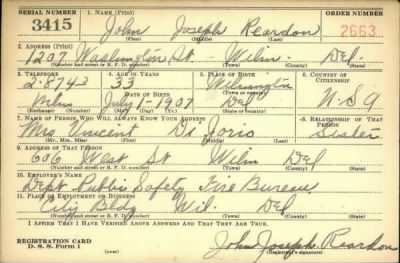 SERIAL NUMBER 1. NAME (Print) ORDER NUMBER
3415 John Joseph Reardon 2663
(First) (Middle) (Last)
2. ADDRESS (Print)
1207 Washington St. - Wilm. Del.
(Number and street or R. F. D. number) (Town) (County) (State)
3. TELEPHONE 4. AGE IN YEARS 5. PLACE OF BIRTH 6. COUNTRY OF CITIZENSHIP
2-8743 33 Wilmington
DATE OF BIRTH (Town or county)
July 1-1907 Del U.S.A
(Exchange) (Number) (Mo.) (Day) (Yr.) (State or country)
7. NAME OF PERSON WHO WILL ALWAYS KNOW YOUR ADDRESS 8. RELATIONSHIP OF THAT PERSON
Mrs Vincent Di Iorio Sister
(Mr., Mrs., Miss) (First) (Middle) (Last)
9. ADDRESS OF THAT PERSON
606 West St Wilm Del
(Number and street or R. F. D. number) (Town) (County) (State)
10. EMPLOYER'S NAME
Dept Public Safety Fire Bureau
11. PLACE OF EMPLOYMENT OR BUSINESS
City Bldg Wil. Del
(Number and street or R. F. D. number) (Town) (County) (State)
I AFFIRM THAT I HAVE VERIFIED ABOVE ANSWERS AND THAT THEY ARE TRUE.
REGISTRATION CARD
D. S. S. Form 1 John Joseph Reardon
(Registrant's signature)